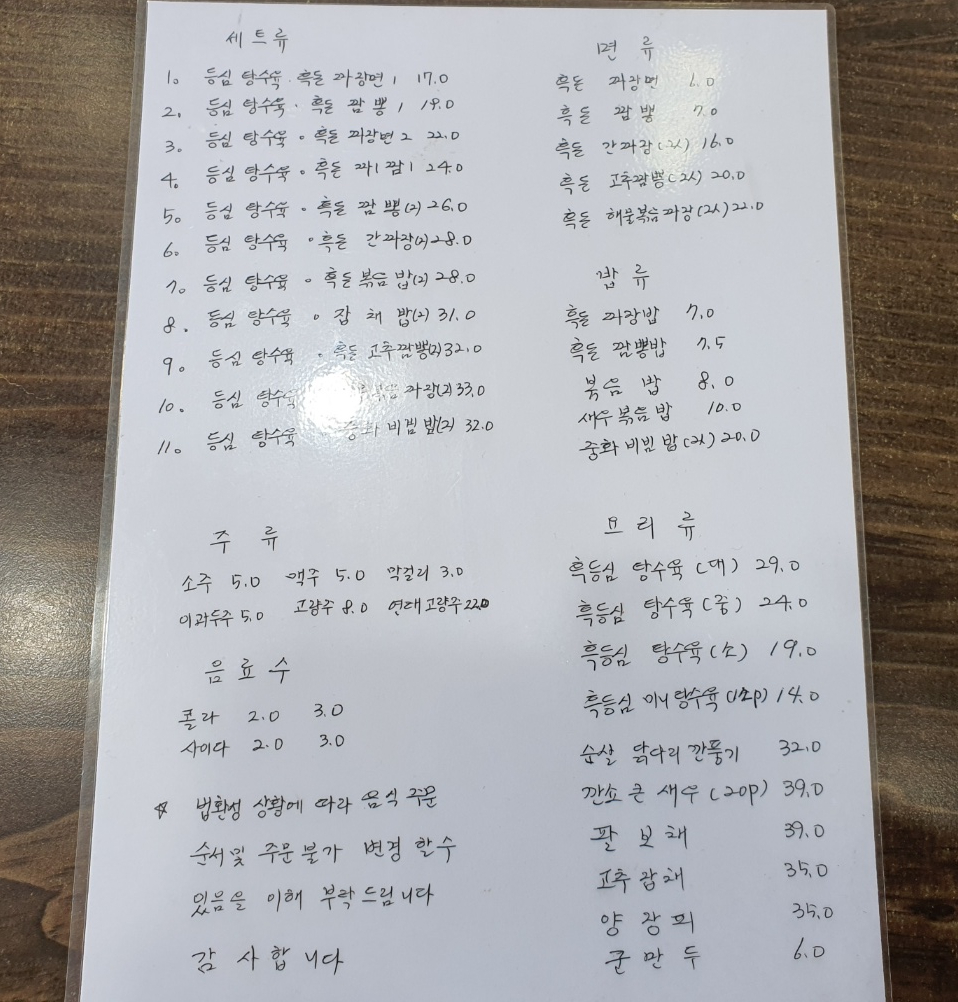 세트류
1. 등심 탕수육 · 흑돈 짜장면 1 17.0
2. 등심 탕수육 · 흑돈 짬뽕 1 19.0
3. 등심 탕수육 · 흑돈 짜장면 2 22.0
4. 등심 탕수육 · 흑돈 짜1 짬1 24.0
5. 등심 탕수육 · 흑돈 짬뽕(2) 26.0
6. 등심 탕수육 · 흑돈 간짜장(2) 28.0
7. 등심 탕수육 · 흑돈 볶음밥(2) 28.0
8. 등심 탕수육 · 잡채밥(2) 31.0
9. 등심 탕수육 · 흑돈 고추짬뽕(2) 32.0
10. 등심 탕수육 짜장(2) 33.0
11. 등심 탕수육 중화비빔밥(2) 32.0
주류
소주 5.0 맥주 5.0 막걸리 3.0
이과두주 5.0 고량주 8.0 연태고량주 22.0
음료수
콜라 2.0 3.0
사이다 2.0 3.0
☆ 상황에 따라 음식 주문
순서및 주문불가 변경 할수
있음을 이해 부탁드립니다
감사합니다
면류
흑돈 짜장면 6.0
흑돈 짬뽕 7.0
흑돈 간짜장(2人) 16.0
흑돈 고추짬뽕(2人) 20.0
흑돈 해물볶음짜장(2人) 22.0
밥류
흑돈 짜장밥 7.0
흑돈 짬뽕밥 7.5
볶음밥 8.0
새우볶음밥 10.0
중화비빔밥(2人) 20.0
요리류
흑등심 탕수육(대) 29.0
흑등심 탕수육(중) 24.0
흑등심 탕수육(소) 19.0
흑등심 미니탕수육 14.0
순살 닭다리 깐풍기 32.0
깐쇼 큰 새우(20p) 39.0
팔보채 39.0
고추잡채 35.0
양장피 35.0
군만두 6.0